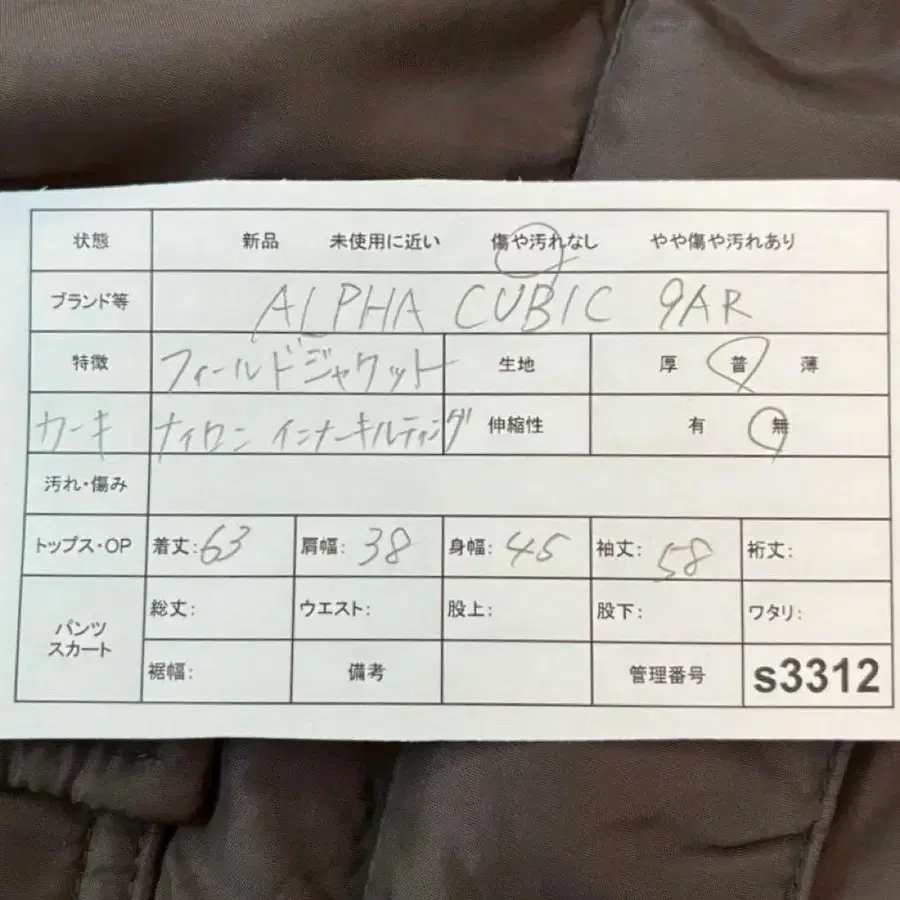 状態 新品 未使用に近い 傷や汚れなし やや傷や汚れあり
ブランド等 ALPHA CUBIC 9AR
特徴 フィールドジャケット 生地 厚 普 薄
カーキ ナイロン インナーキルティング 伸縮性 有 無
汚れ・傷み
トップス・OP 着丈:63 肩幅:38 身幅:45 袖丈:58 裄丈:
パンツ スカート 総丈: ウエスト: 股上: 股下: ワタリ:
裾幅: 備考 管理番号 s3312